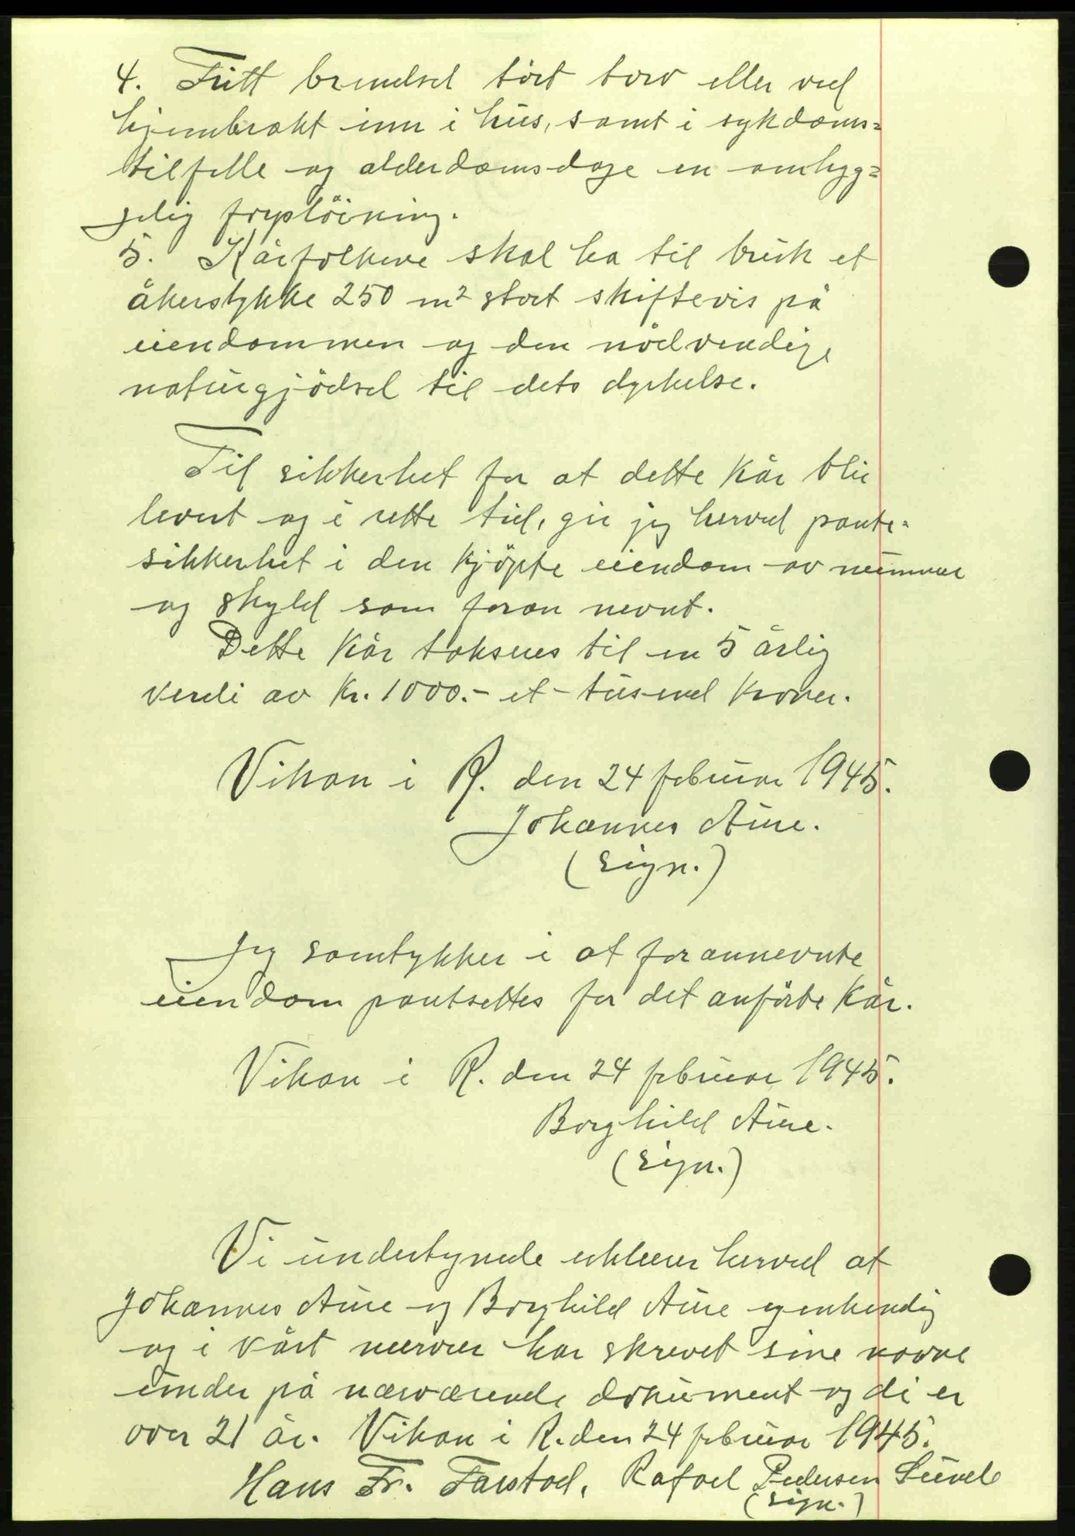 4. Fritt brendsel tört torv eller ved
hjembrakt inn i hus, samt i sykdoms=
tilfelle og alderdomsdage en omhyg=
gelig forpleining.
5. Kårfolkene skal ha til bruk et
åkerstykke 250 m² stort skiftevis på
eiendommen og den nödvendige
naturgjödsel til dets dyrkelse.
Til sikkerhet for at dette kår blir
levert og i rette tid, gir jeg herved pante-
sikkerhet i den kjöpte eiendom av nummer
og skyld som foran nevnt.
Dette kår takseres til en 5 årlig
verdi av kr. 1000.- et-tusend kroner.
Vikan i R. den 24 februar 1945.
Johannes Aure.
(sign.)
Jeg samtykker i at forannevnte
eiendom pantsettes for det anförte kår.
Vikan i R. den 24 februar 1945.
Borghild Aure.
(sign.)
Vi undertegnede erklærer herved at
Johannes Aure og Borghild Aure egenhendig
og i vårt nærvær har skrevet sine navne
under på nærværende dokument og de er
over 21 år. Vikan i R. den 24 februar 1945.
Hans Fr. Farstad, Rafael Pedersen Sunde
(sign.)